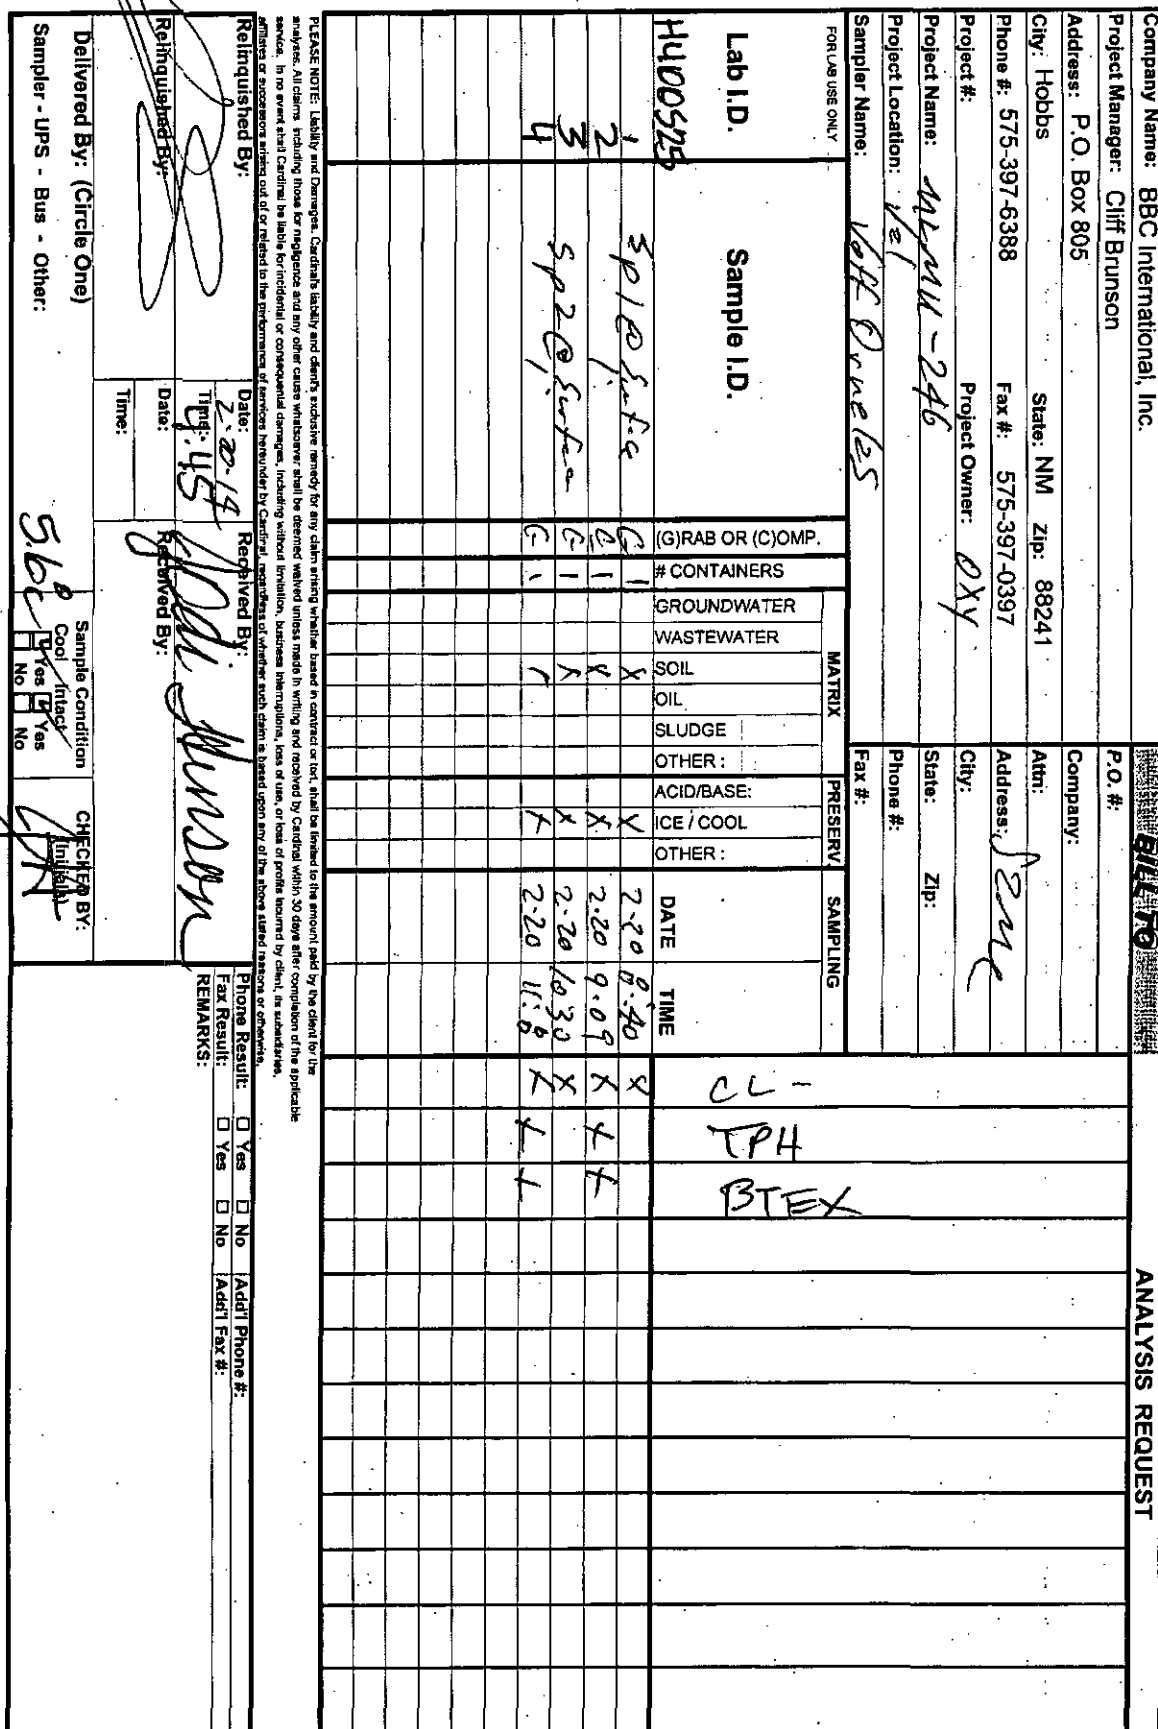 Company Name: BBC International, Inc.
BILL TO
ANALYSIS REQUEST
Project Manager: Cliff Brunson
P.O. #:
Address: P.O. Box 805
Company:
City: Hobbs State: NM Zip: 88241
Attn:
Phone #: 575-397-6388 Fax #: 575-397-0397
Address: Same
Project #: Project Owner: OXY
City:
Project Name: NMNU-246
State: Zip:
Project Location:
Phone #:
Sampler Name: Jeff Ornelas
Fax #:
FOR LAB USE ONLY
MATRIX
PRESERV.
SAMPLING
Lab I.D.
Sample I.D.
(G)RAB OR (C)OMP.
# CONTAINERS
GROUNDWATER
WASTEWATER
SOIL
OIL
SLUDGE
OTHER :
ACID/BASE:
ICE / COOL
OTHER :
DATE
TIME
CL -
TPH
BTEX
H400525
1 SP1 @ Surface G 1 X X 2-20 8:40 X
2 G 1 X X 2-20 9:09 X X X
3 SP2 @ Surface G 1 X X 2-20 10:30 X
4 G 1 X 2-20 11: X X X
PLEASE NOTE: Liability and Damages. Cardinal's liability and client's exclusive remedy for any claim arising whether based in contract or tort, shall be limited to the amount paid by the client for the
analyses. All claims including those for negligence and any other cause whatsoever shall be deemed waived unless made in writing and received by Cardinal within 30 days after completion of the applicable
service. In no event shall Cardinal be liable for incidental or consequental damages, including without limitation, business interruptions, loss of use, or loss of profits incurred by client, its subsidiaries,
affiliates or successors arising out of or related to the performance of services hereunder by Cardinal, regardless of whether such claim is based upon any of the above stated reasons or otherwise.
Relinquished By:
Date: 2-20-14
Time: 4:45
Received By:
Jodi Henson
Phone Result: ☐ Yes ☐ No Add'l Phone #:
Fax Result: ☐ Yes ☐ No Add'l Fax #:
REMARKS:
Relinquished By:
Date:
Time:
Received By:
Delivered By: (Circle One)
Sampler - UPS - Bus - Other:
5.6°C
Sample Condition
Cool Intact
Yes Yes
No No
CHECKED BY:
(Initials)